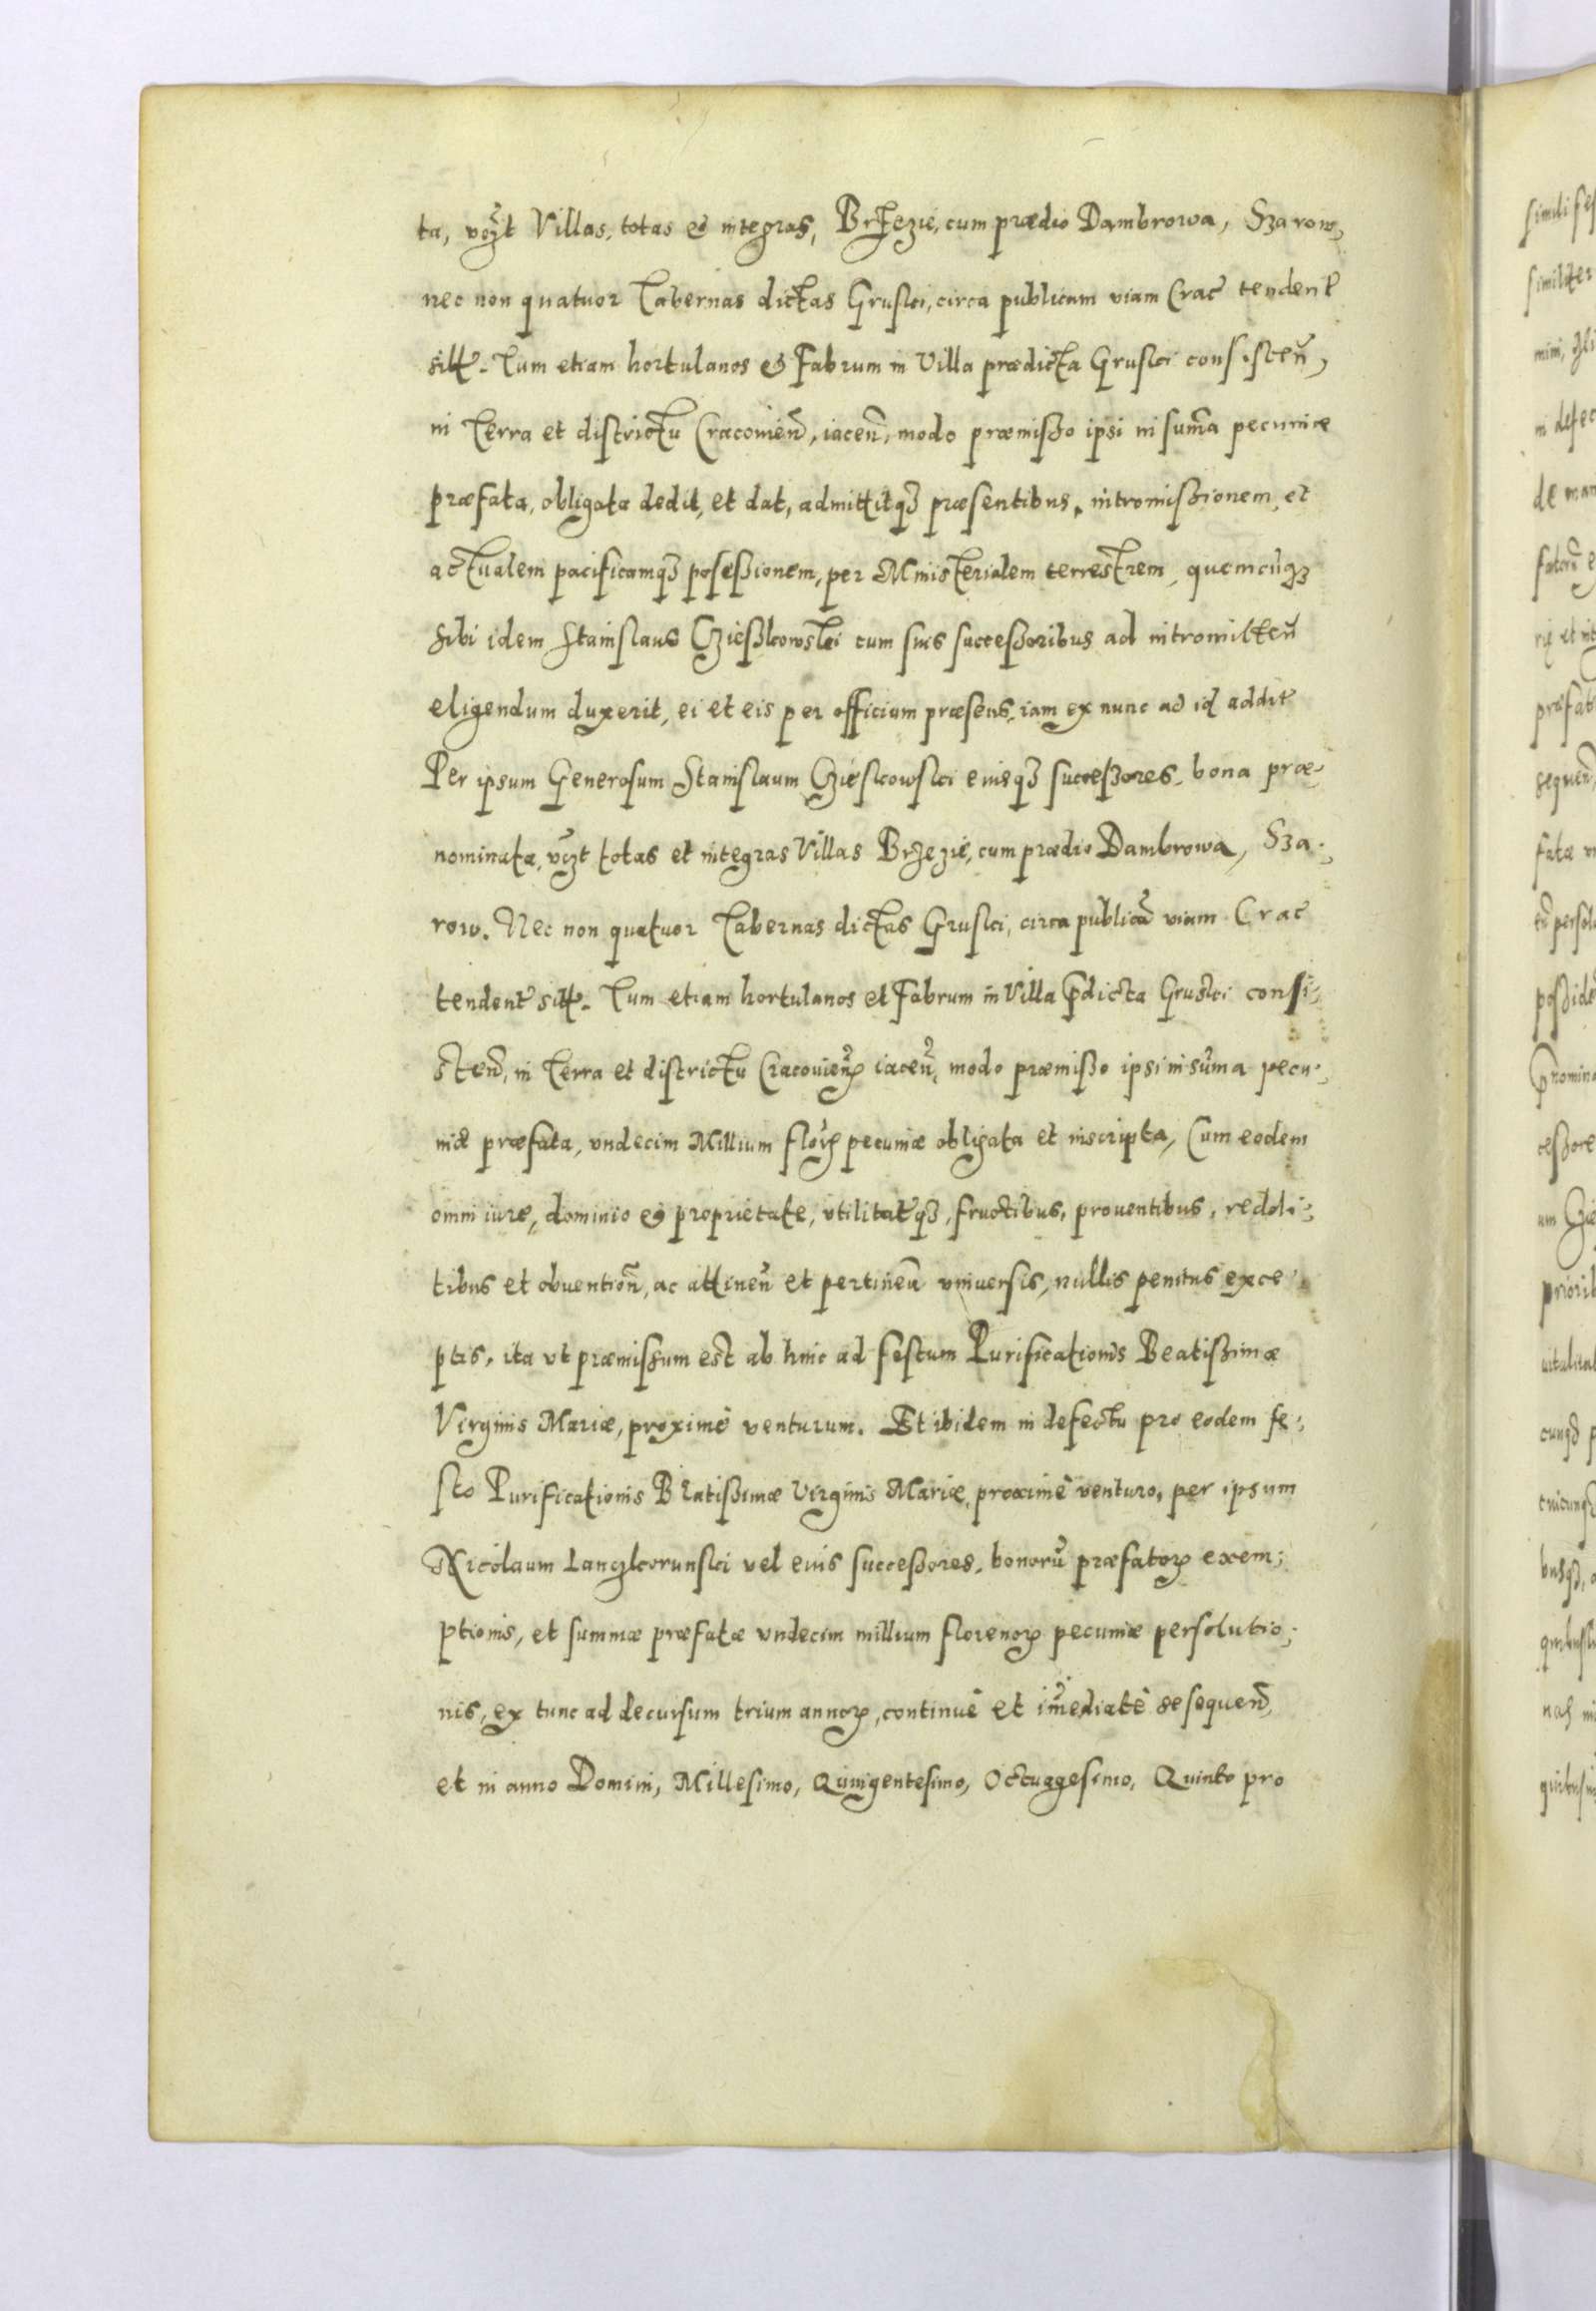 ta, vczt Villas, totas & integras, Brzezie, cum prædio Dambrowa, Szarow,
nec non quatuor Tabernas dictas Gruski, circa publicam viam Crac̃ tendent̃
sitt̃. Tum etiam hortulanos & Fabrum in Villa prædicta Gruski consisteñ,
in Terra et districtu Cracovieñ, iaceñ, modo præmisso ipsi in sum̃a pecuniæ
præfata, obligata dedit, et dat, admittitqȝ præsentibus, intromissionem et
actualem pacificamqȝ possessionem, per Ministerialem terrestrem, quemcũqȝ
sibi idem Stanislaus Czieszkowski cum suis successoribus ad intromitteñ
eligendum duxerit, ei et eis per officium præsens, iam ex nunc ad id addit̃
Per ipsum Generosum Stanislaum Czieskowski eiusqȝ successores, bona præ-
nominata, vczt totas et integras Villas Brzezie, cum prædio Dambrowa, Sza-
row. Nec non quatuor Tabernas dictas Gruski, circa publicã viam Crac̃
tendent̃ sitt̃. Tum etiam hortulanos et Fabrum in Villa p̃dicta Gruski consi-
steñ, in Terra et districtu Cracovieñ iaceñ, modo præmisso ipsi in sũma pecu-
niæ præfata, vndecim Millium flor̃ pecuniæ obligata et inscripta, Cum eodem
omni iure, dominio & proprietate, vtilitat̃qȝ, fructibus, prouentibus, reddi-
tibus et obventioñ, ac attineñ et pertineñ vniversis, nullis penitus exce-
ptis, ita vt præmissum est ab hinc ad festum Purificationis Beatissimæ
Virginis Mariæ, proximè venturum. Et ibidem in defectu pro eodem fe-
sto Purificationis Beatissimæ Virginis Mariæ, proximè venturo, per ipsum
Nicolaum Langkorunski vel eius successores, bonorũ præfatoꝝ exem-
ptionis, et summæ præfatæ vndecim millium florenoꝝ pecuniæ persolutio-
nis, ex tunc ad decursum trium annoꝝ, continuè et im̃ediatè sesequeñ,
et in anno Domini, Millesimo, Quingentesimo, Octuagesimo, Quinto pro